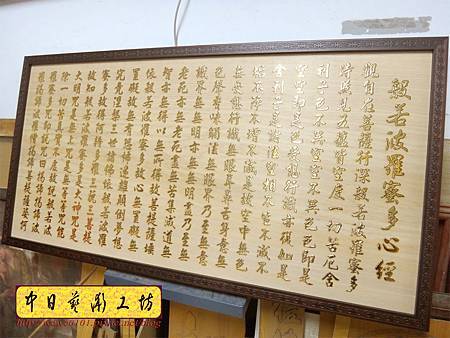 般若波羅蜜多心經
觀自在菩薩行深般若波羅蜜多
時照見五蘊皆空度一切苦厄舍
利子色不異空空不異色色即是
空空即是色受想行識亦復如是
舍利子是諸法空相不生不滅不
垢不淨不增不減是故空中無色
無受想行識無眼耳鼻舌身意無
色聲香味觸法無眼界乃至無意
識界無無明亦無無明盡乃至無
老死亦無老死盡無苦集滅道無
智亦無得以無所得故菩提薩埵
依般若波羅蜜多故心無罣礙無
罣礙故無有恐怖遠離顛倒夢想
究竟涅槃三世諸佛依般若波羅
蜜多故得阿耨多羅三藐三菩提
故知般若波羅蜜多是大神咒是
大明咒是無上咒是無等等咒能
除一切苦真實不虛故說般若波
羅蜜多咒即說咒曰揭諦揭諦波
羅揭諦波羅僧揭諦菩提薩婆訶
中日藝彫工坊